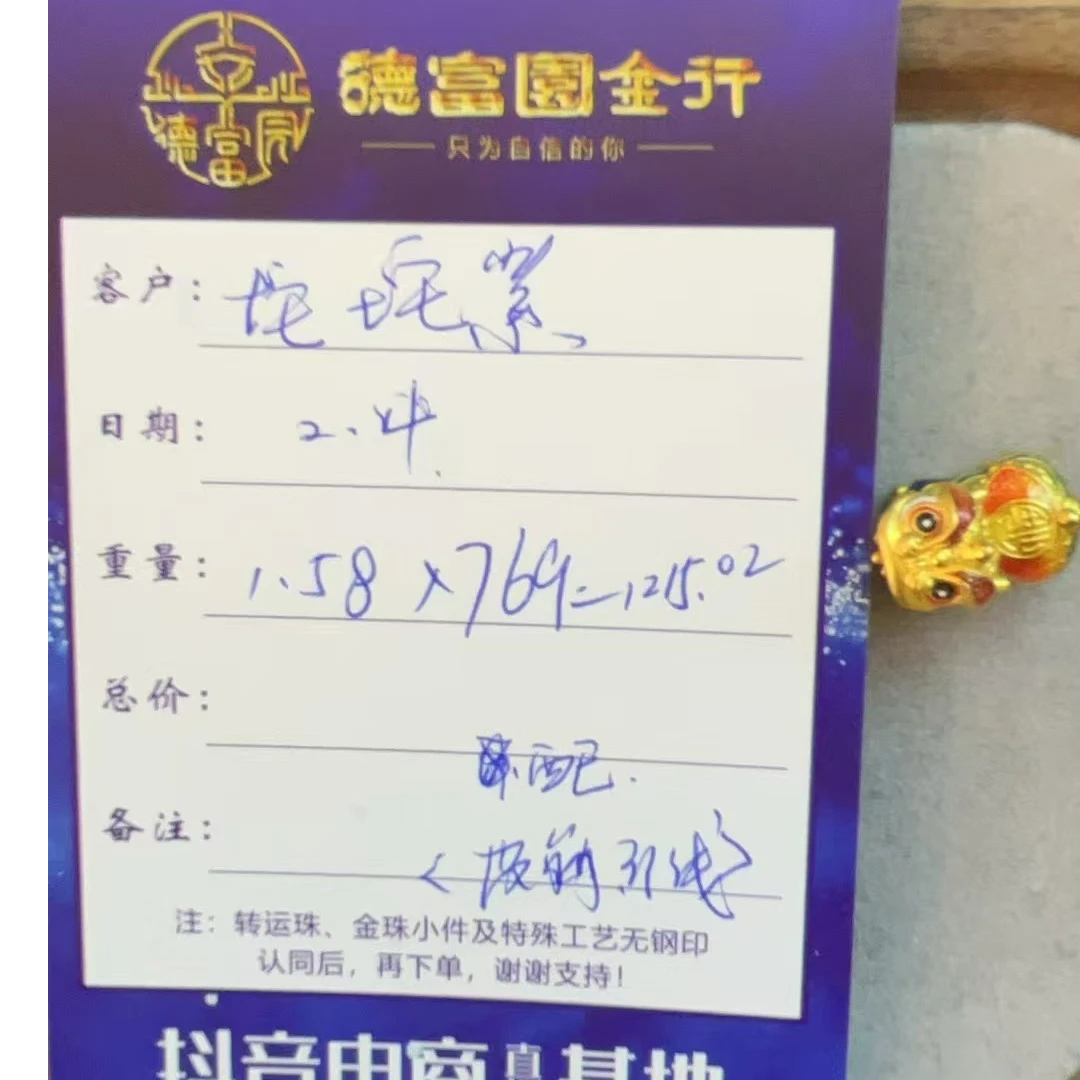 德富園
德富園金行
只为自信的你
客户：坨坨
日期：2.4
重量：1.58×769=1215.02
总价：
配.
备注：
引线>
注：转运珠、金珠小件及特殊工艺无钢印
认同后，再下单，谢谢支持！
抖音电商直播基地